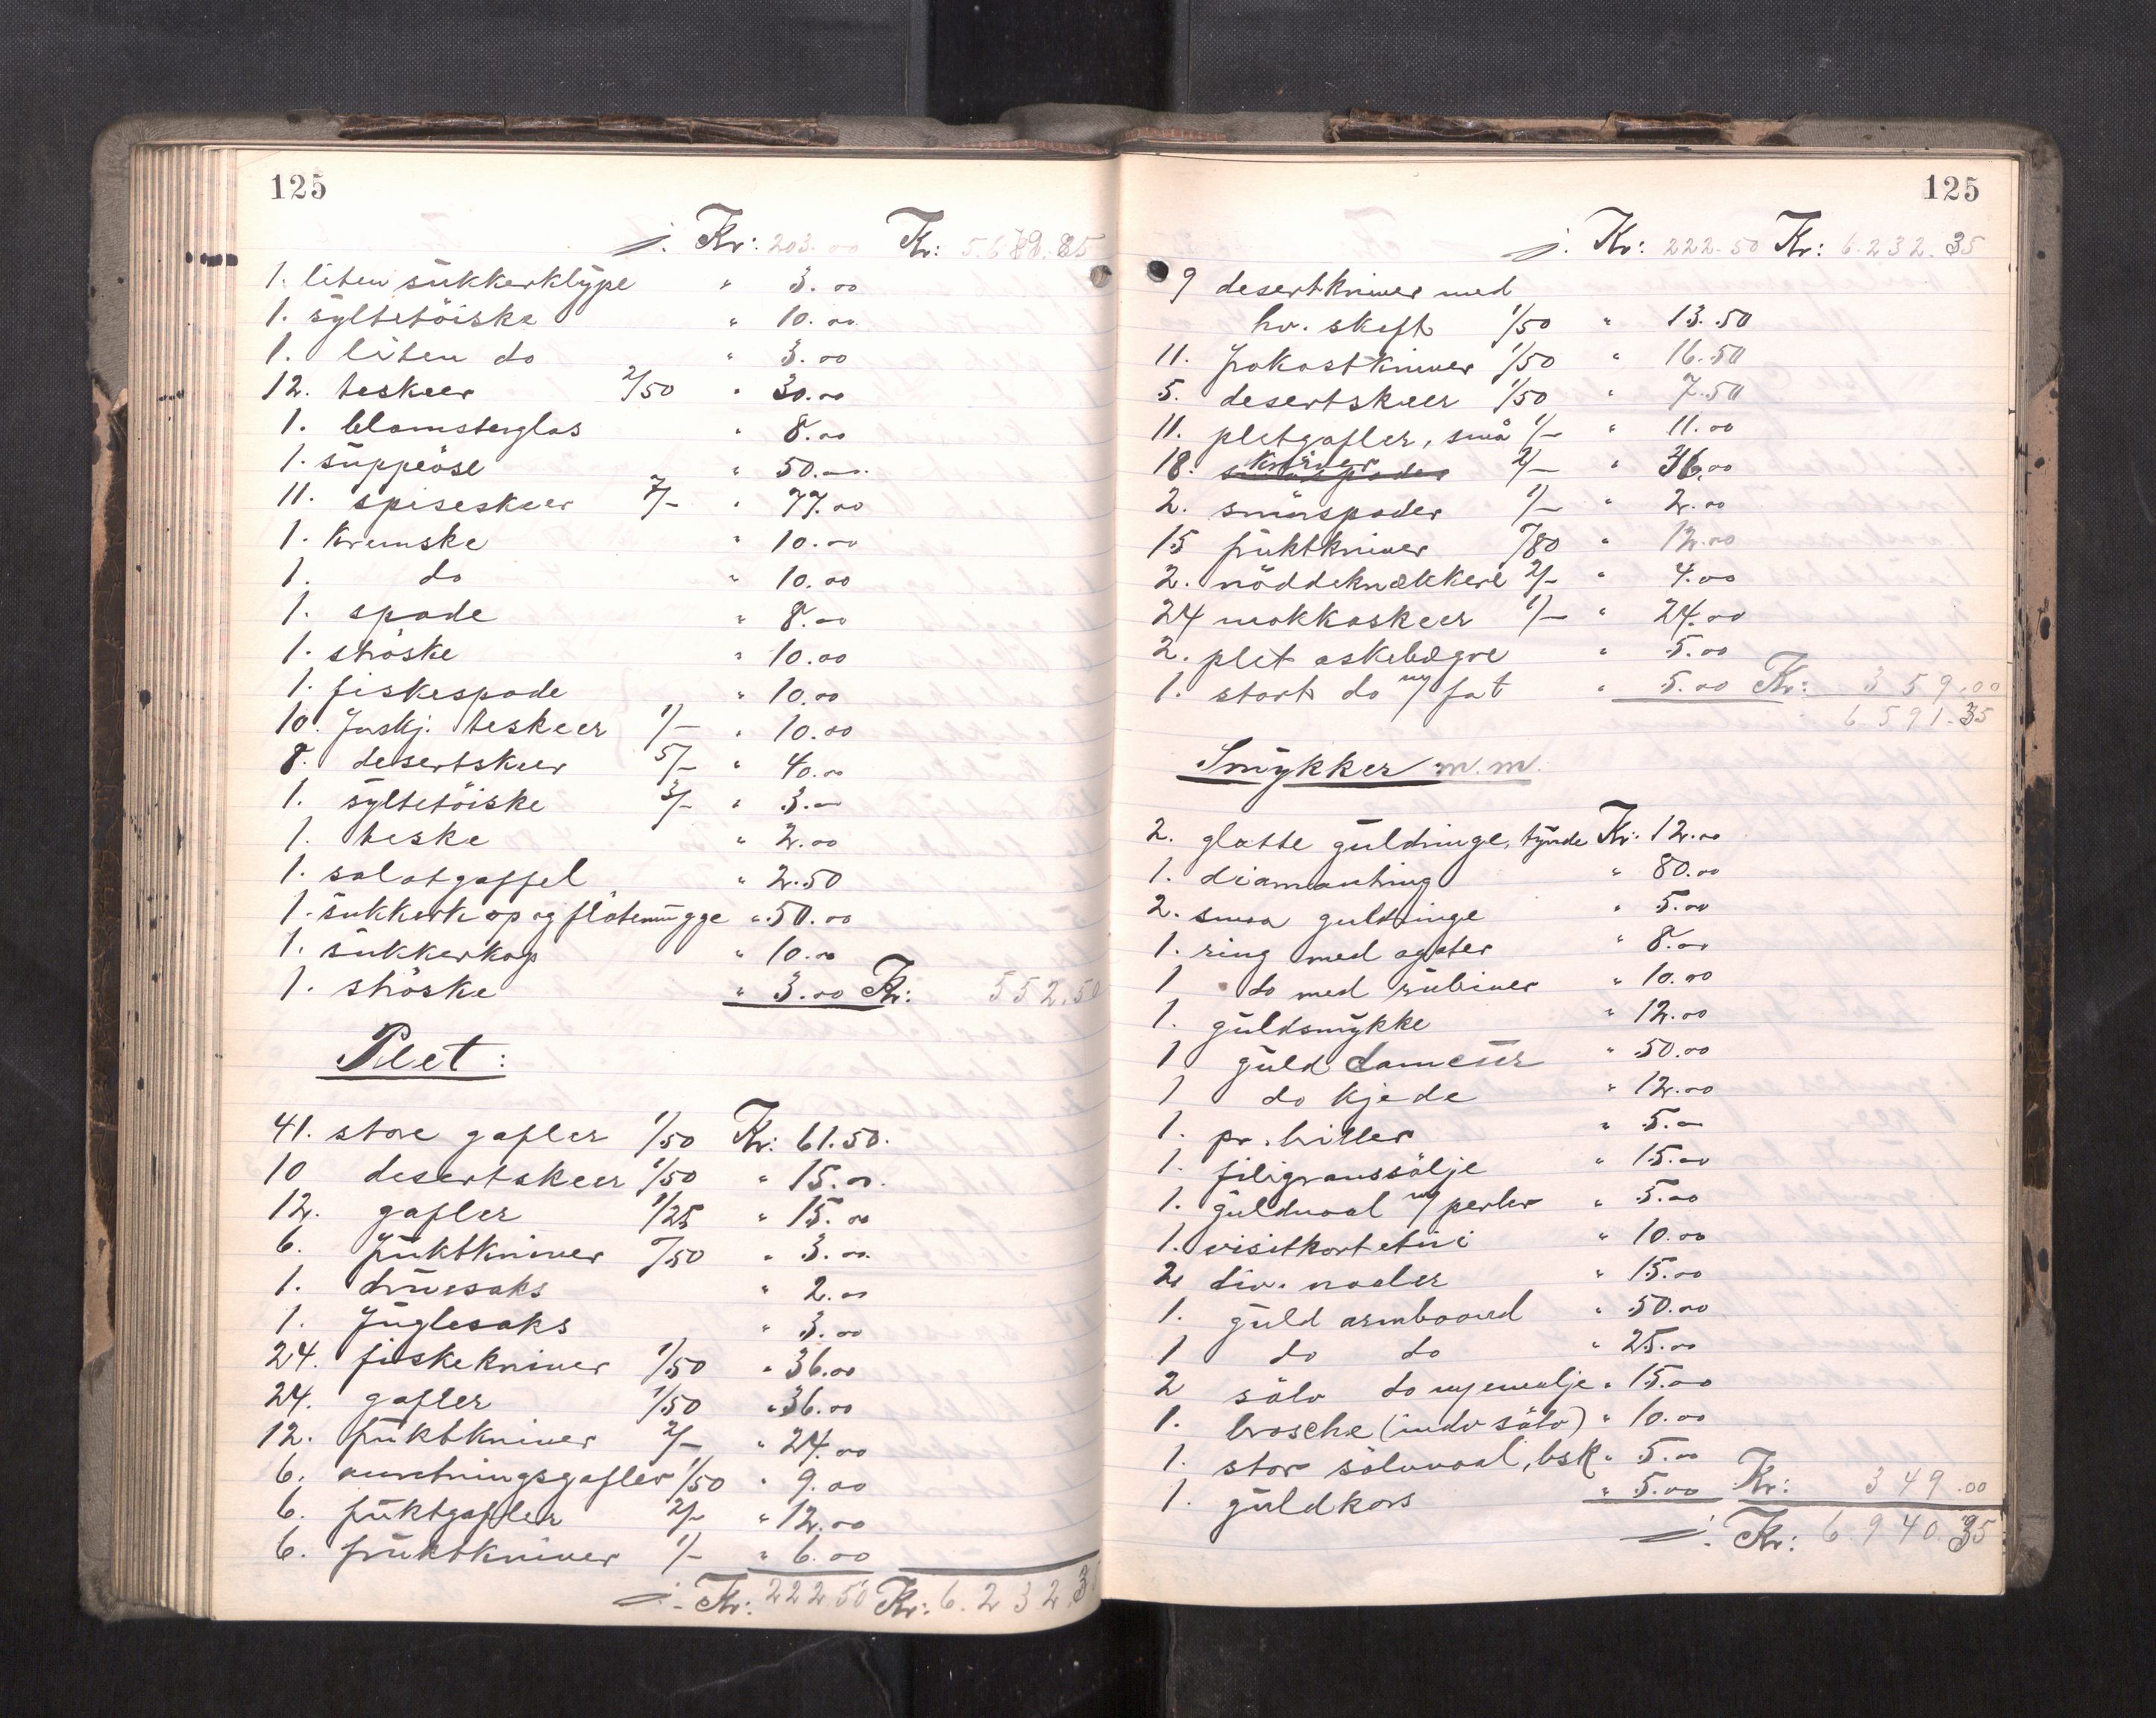 125
·/. Kr: 203.00 Kr: 5.679.85
1. liten sukkerklype " 3.00
1. syltetöiske " 10.00
1. liten do " 3.00
12. teskeer 2/50 " 30.00
1. blomsterglas " 8.00
1. suppeöse " 50.00
11. spiseskeer 7/- " 77.00
1. Kremske " 10.00
1. do " 10.00
1. spade " 8.00
1. ströske " 10.00
1. fiskespade " 10.00
10. forskj. teskeer 1/- " 10.00
8. desertskeer 5/- " 40.00
1. syltetöiske 3/- " 3.00
1. teske " 2.00
1. salatgaffel " 2.50
1. sukkerkop og flötemugge " 50.00
1. sukkerkop " 10.00
1. ströske " 3.00 Kr: 552.50
Plet:
41. store gafler 1/50 Kr: 61.50.
10 desertskeer 1/50 " 15.00.
12. gafler 1/25 " 15.00
6. fruktkniver "/50 " 3.00
1. druesaks " 2.00
1. fuglesaks " 3.00
24. fiskekniver 1/50 " 36.00
24. gafler 1/50 " 36.00
12. fruktkniver 2/- " 24.00
6. anretningsgafler 1/50 " 9.00
6. fruktgafler 2/- " 12.00
6. fruktkniver 1/- " 6.00
·/. Kr: 222.50 Kr: 6.232.3
125
·/. Kr: 222.50 Kr: 6.232.35
9 desertkniver med
hv. skaft 1/50 " 13.50
11. frokostkniver 1/50 " 16.50
5. desertskeer 1/50 " 7.50
11. pletgafler, små 1/- " 11.00
18. kniver 2/- " 36.00
2. smörspader 1/- " 2.00
15 fruktkniver "/80 " 12.00
2. nöddeknækkere 2/- " 4.00
24 mokkaskeer 1/- " 24.00
2. plet askebægre " 5.00
1. stort do m/ fat " 5.00 Kr: 359.00
6.591.35
Smykker m.m.
2. glatte guldringe, tynde Kr: 12.00
1. diamantring " 80.00
2. smaa guldringe " 5.00
1. ring med agater " 8.00
1 do med rubiner " 10.00
1. guldsmykke " 12.00
1 guld dameur " 50.00
1 do kjede " 12.00
1. pr. briller " 5.00
1. filigranssölje " 15.00
1. guldnaal m/ perler " 5.00
1. visitkortetui " 10.00
2 div. naaler " 15.00
1. guld armbaand " 50.00
1 do do " 25.00
2 sölv do m/emalje " 15.00
1. brosche (indv sölv) " 10.00
1. stor sölvnaal, bsk " 5.00
1. guldkors " 5.00 Kr: 349.00
·/. Kr: 6.940.35